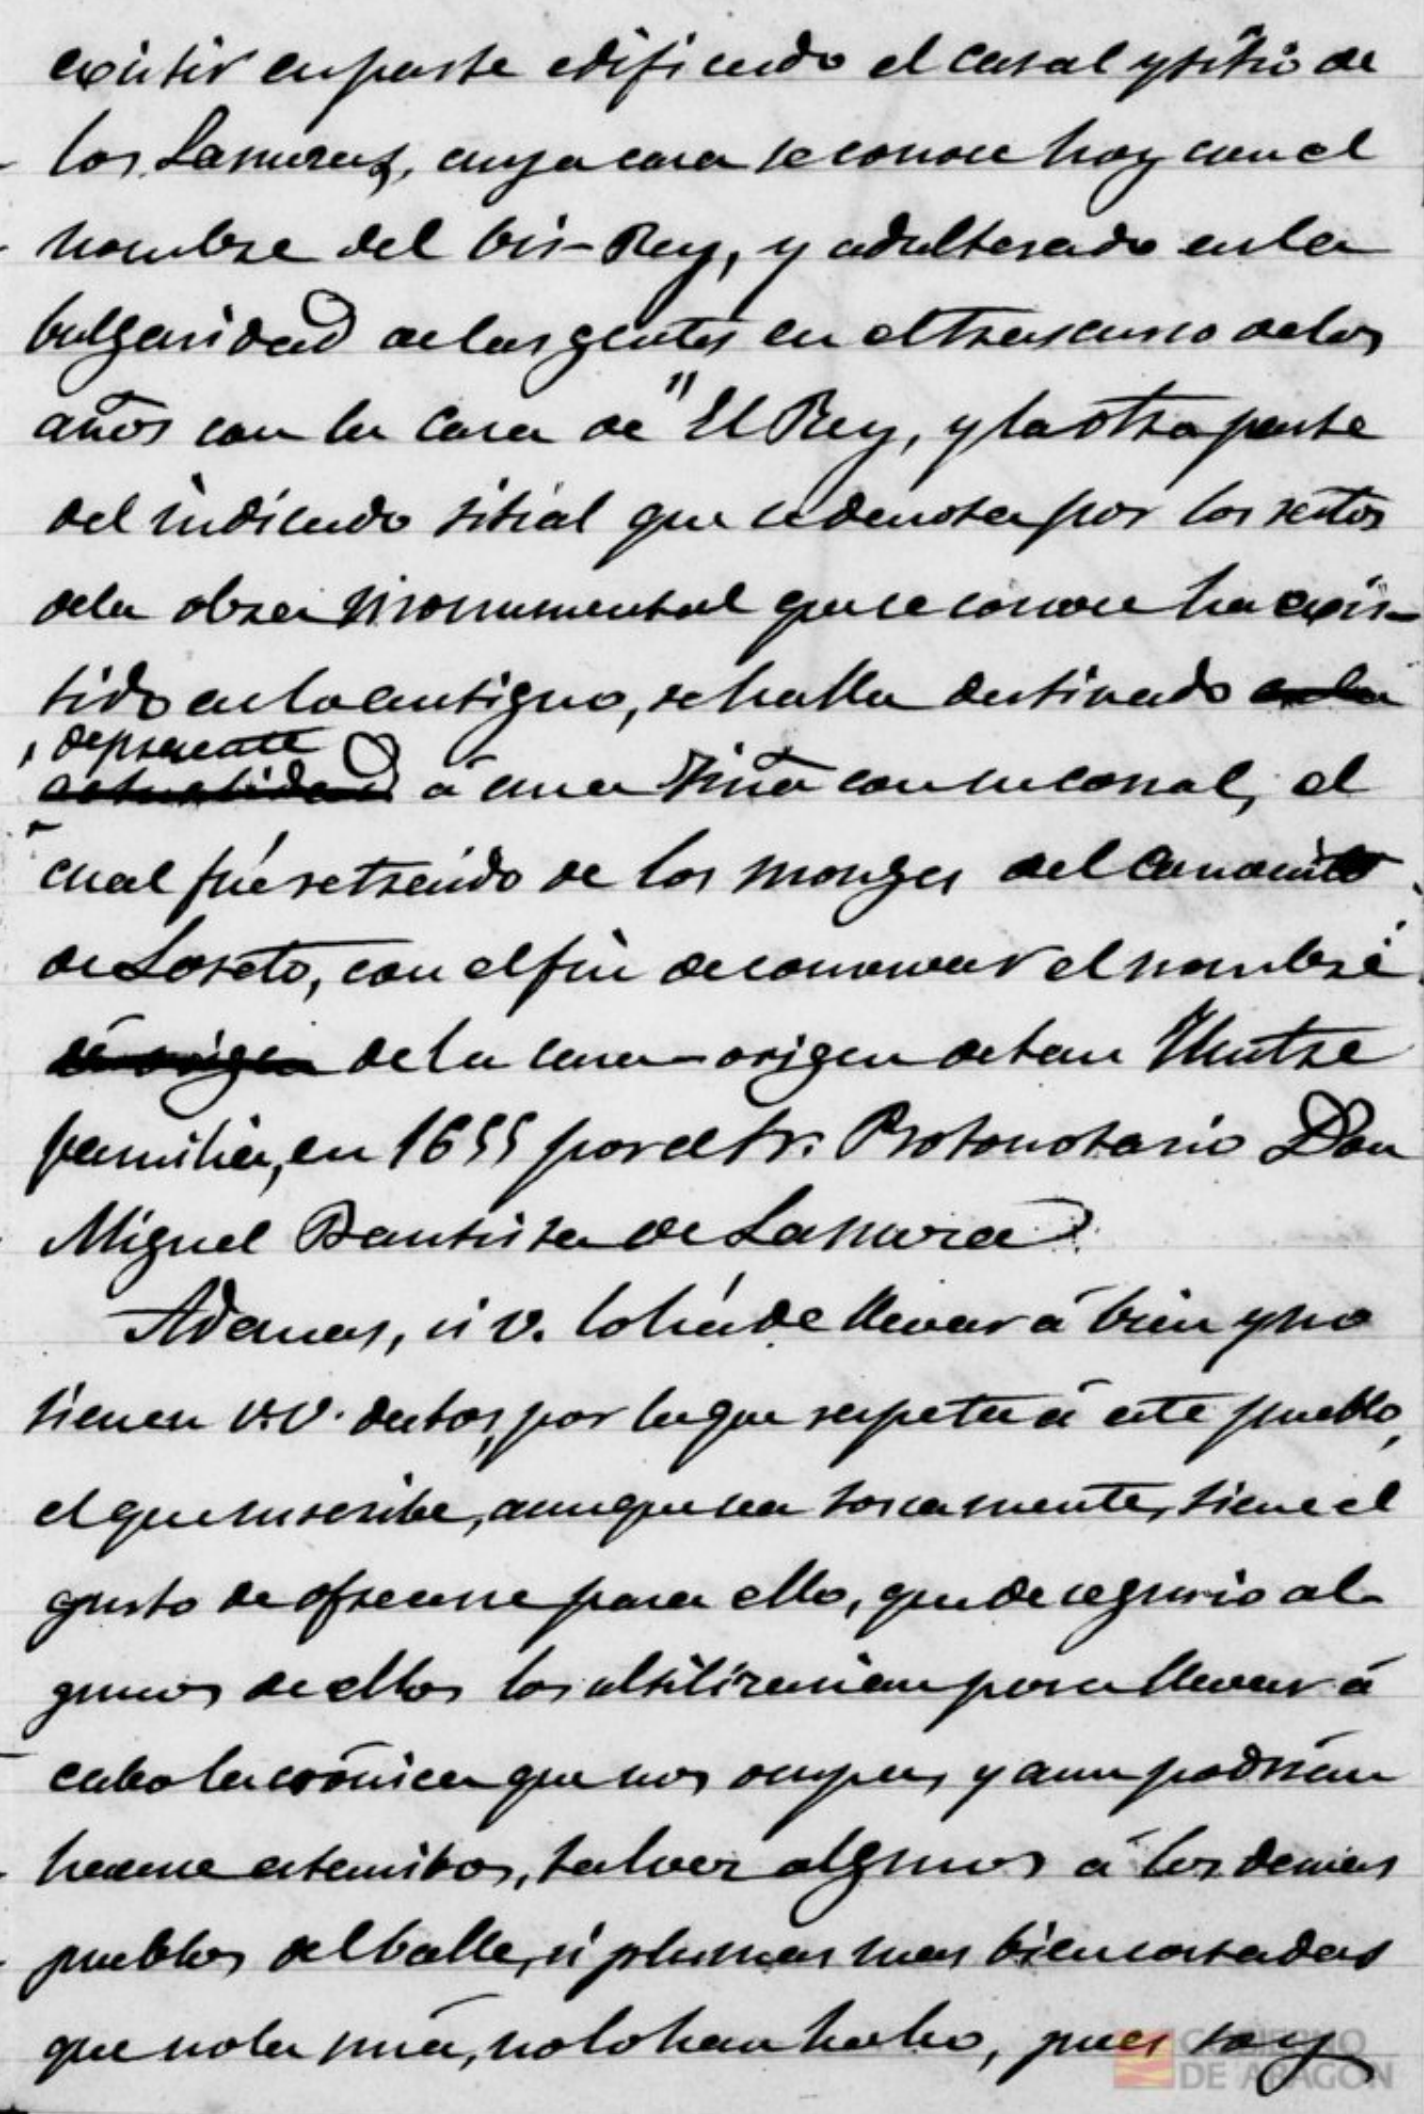 existir en parte edificado el casal y sitio de
los Lanuzas, cuya casa se conoce hoy con el
nombre del bis-Rey, y adulterado en la
bulgaridad de las gentes en el trascurso de los
años con la casa de "El Rey, y la otra parte
del indicado sitial que se denota por los restos
de la obra monumental que se conoce ha exis-
tido en lo antiguo, se halla destinado en la
depresente
actualidad á una viña con su corral, el
cual fué retraido de los monges del convento
de Loreto, con el fin de conservar el nombre
de origen de la casa-origen de tan Ilustre
familia, en 1655 por el Sr. Protonotario Don
Miguel Bautista de Lanuza.
Ademas, si V. lo há de llevar á bien y no
tienen V.V. datos, por lo que respeta á este pueblo,
el que suscribe, aunque sea toscamente, tiene el
gusto de ofrecerse para ello, que de seguro al-
gunos de ellos los utilizarian para llevar á
cabo la crónica que nos ocupa, y aun podrian
hacerse estensibos, tal vez algunos á los demas
pueblos del balle, si plumas mas bien cortadas
que no la mia, no lo han hecho, pues soy
GOBIERNO
DE ARAGON